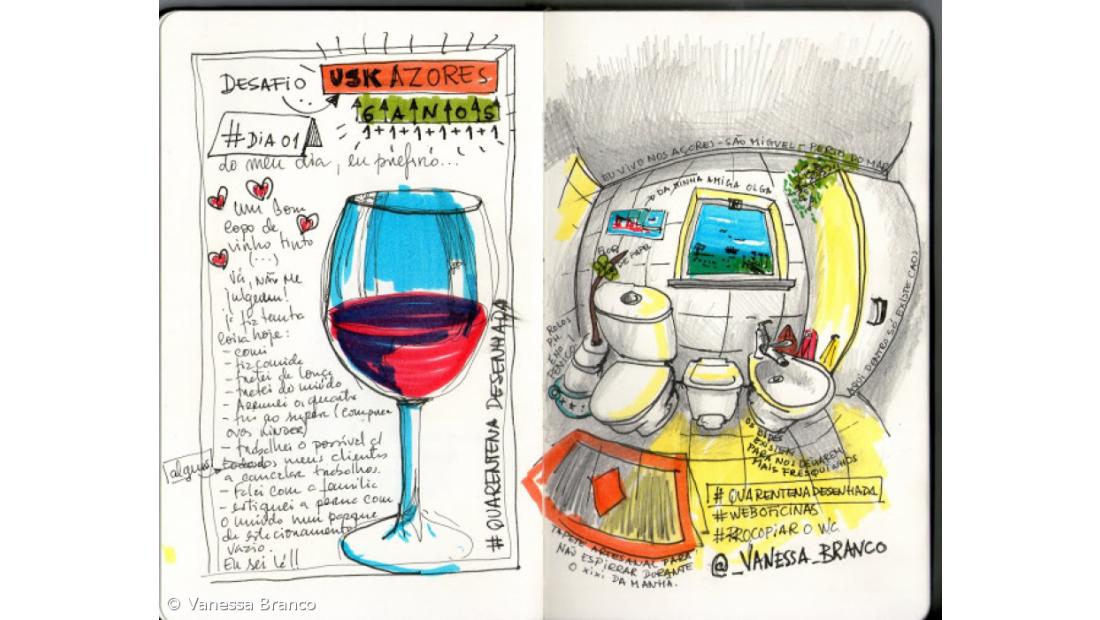 DESAFIO USK AZORES
6 ANOS
1+1+1+1+1+1
#DIA 01
do meu dia, eu prefiro...
Um bom
copo de
vinho tinto
(...)
Vá, não me
julguem!
Já fiz tanta
coisa hoje:
- comi
- fiz comida
- tratei da louça
- tratei do miúdo
- Arrumei o quarto
- fui ao super (comprar
ovos KINDER)
- trabalhei o possível c/
alguns
todos os meus clientes
a cancelar trabalhos.
- Falei com a família
- estiquei a perna com
o miúdo num parque
de estacionamento
vazio.
Eu sei lá!!
#QUARENTENA DESENHADA
EU VIVO NOS AÇORES - SÃO MIGUEL - PERTO DO MAR
DA MINHA AMIGA OLGA
FLOR
DE PAPEL
ROLOS
PH
E NO
PENICO
AQUI DENTRO SÓ EXISTE CAOS
OS BIDÉS
EXISTEM
PARA NOS DEIXAREM
MAIS FRESQUINHOS
TAPETE ARTESANAL PARA
NÃO ESPIRRAR DURANTE
O XIXI DA MANHÃ.
#QUARENTENADESENHADA
#WEBOFICINAS
#PROCOPIAR O WC
@_VANESSA_BRANCO
© Vanessa Branco